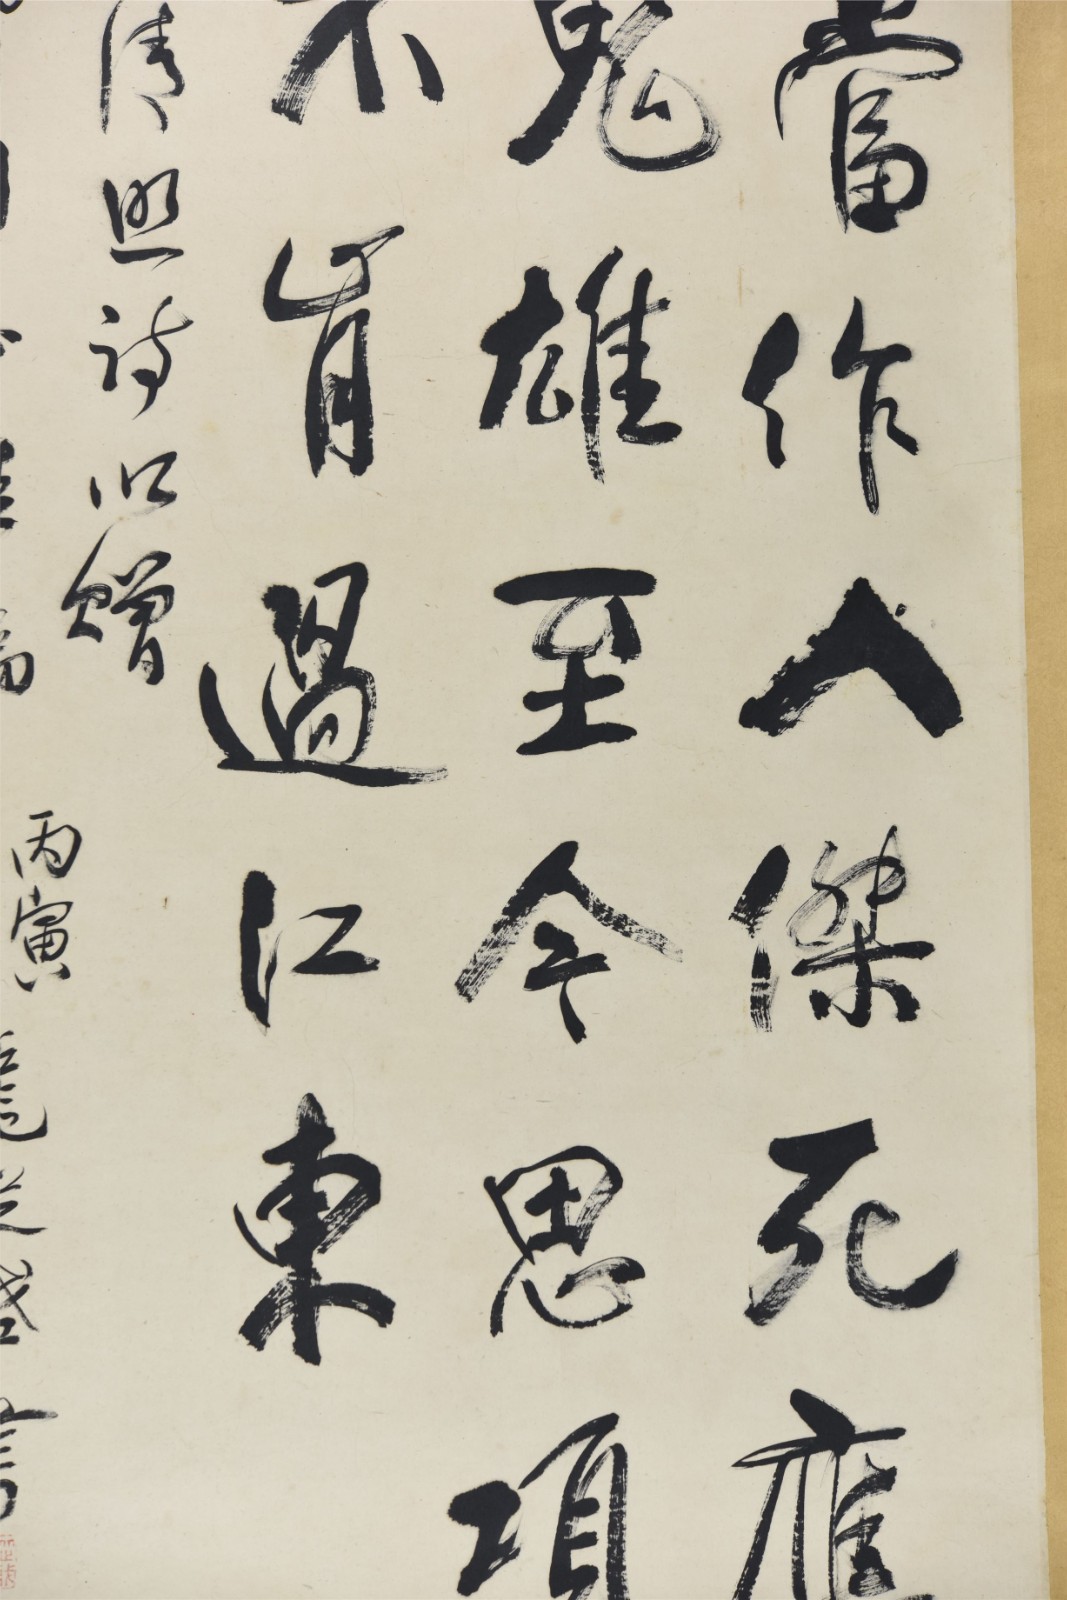 當作人傑死應
鬼雄至今思項
不肯過江東
清照詩以贈
丙寅